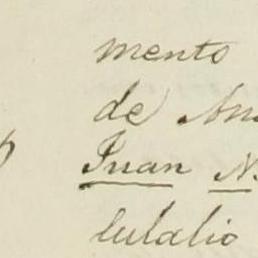 mento
de An
Juan N.
lulalio